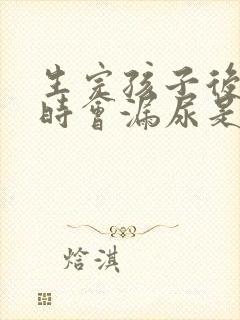 生完孩子後
時會漏尿是
焓淇